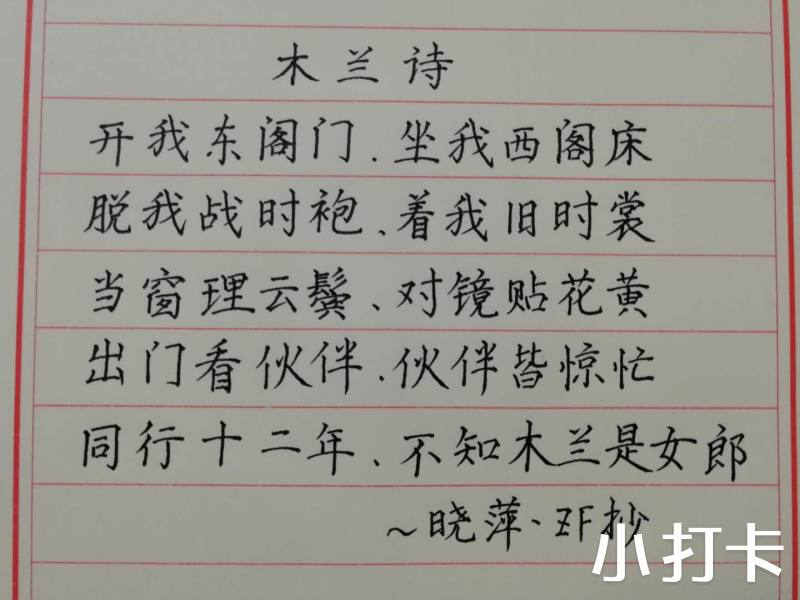 木兰诗
开我东阁门、坐我西阁床
脱我战时袍、着我旧时裳
当窗理云鬓、对镜贴花黄
出门看伙伴、伙伴皆惊忙
同行十二年、不知木兰是女郎
~晓萍、ZF抄
小打卡